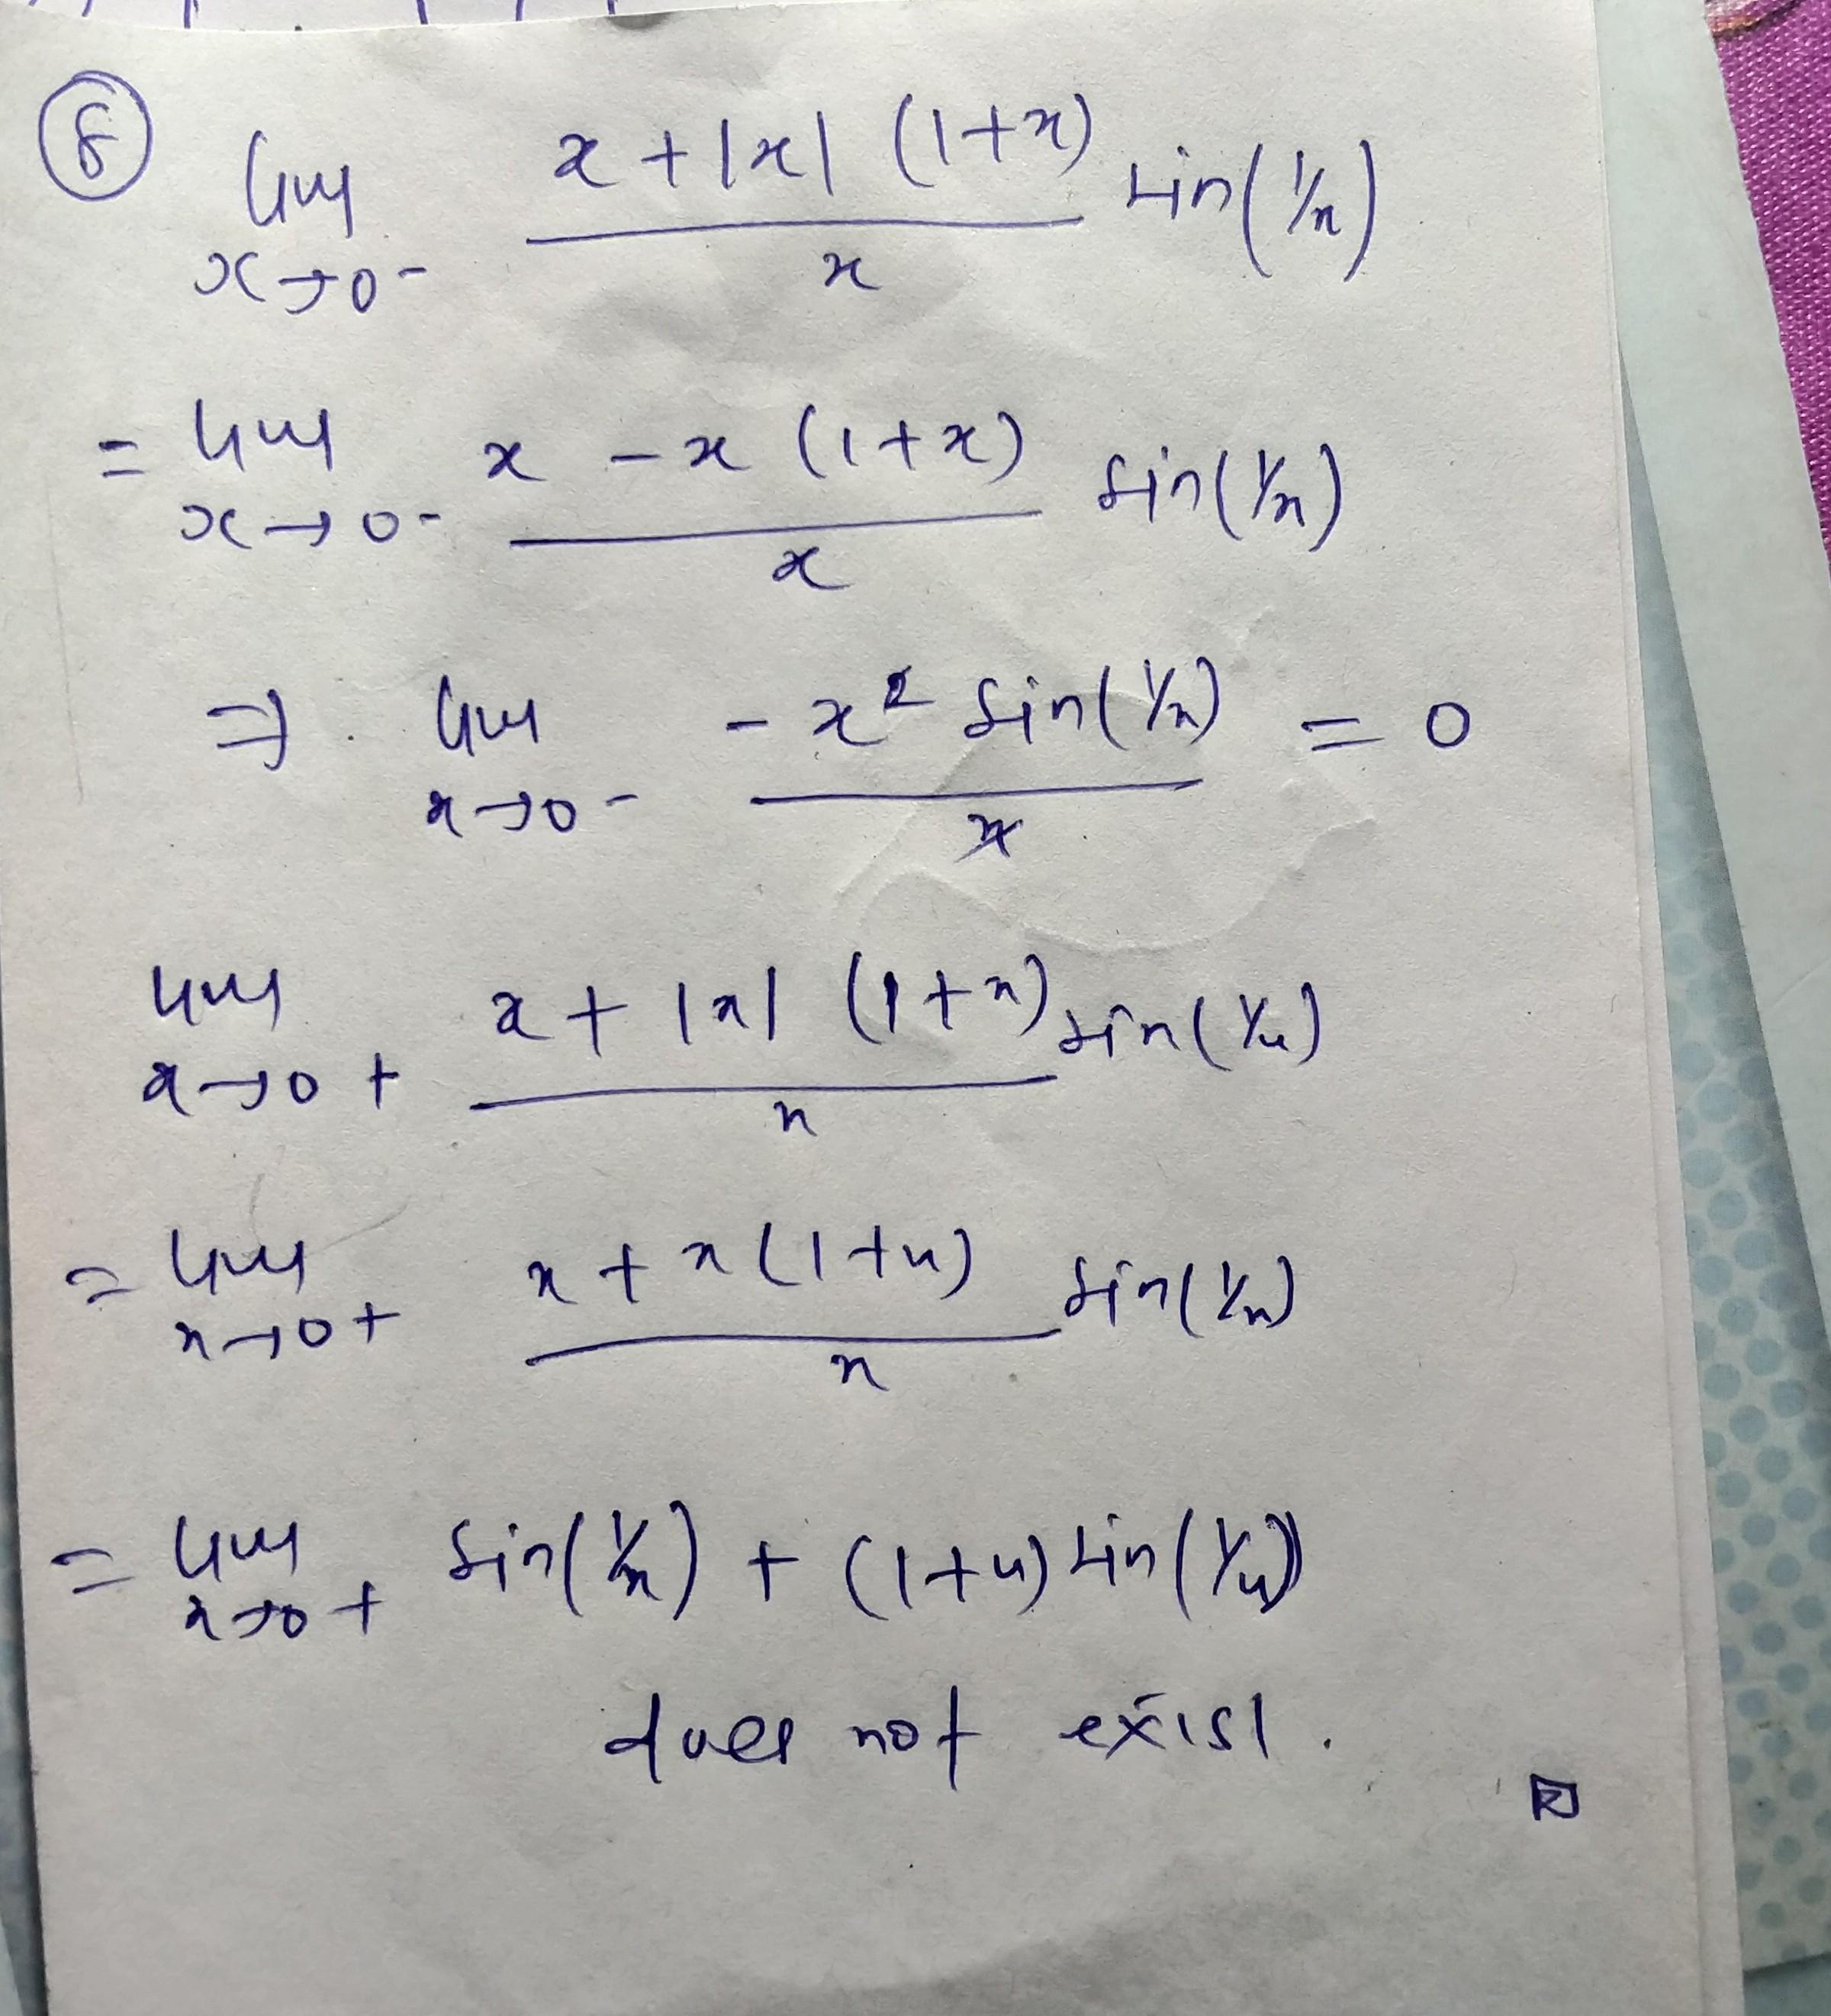 ⑧ lim x→0- x + |x| (1+x) / x sin(1/x)
= lim x→0- x - x (1+x) / x sin(1/x)
⇒ lim x→0- - x² sin(1/x) / x = 0
lim x→0+ x + |x| (1+x) / x sin(1/x)
= lim x→0+ x + x(1+x) / x sin(1/x)
= lim x→0+ sin(1/x) + (1+x) sin(1/x)
does not exist.